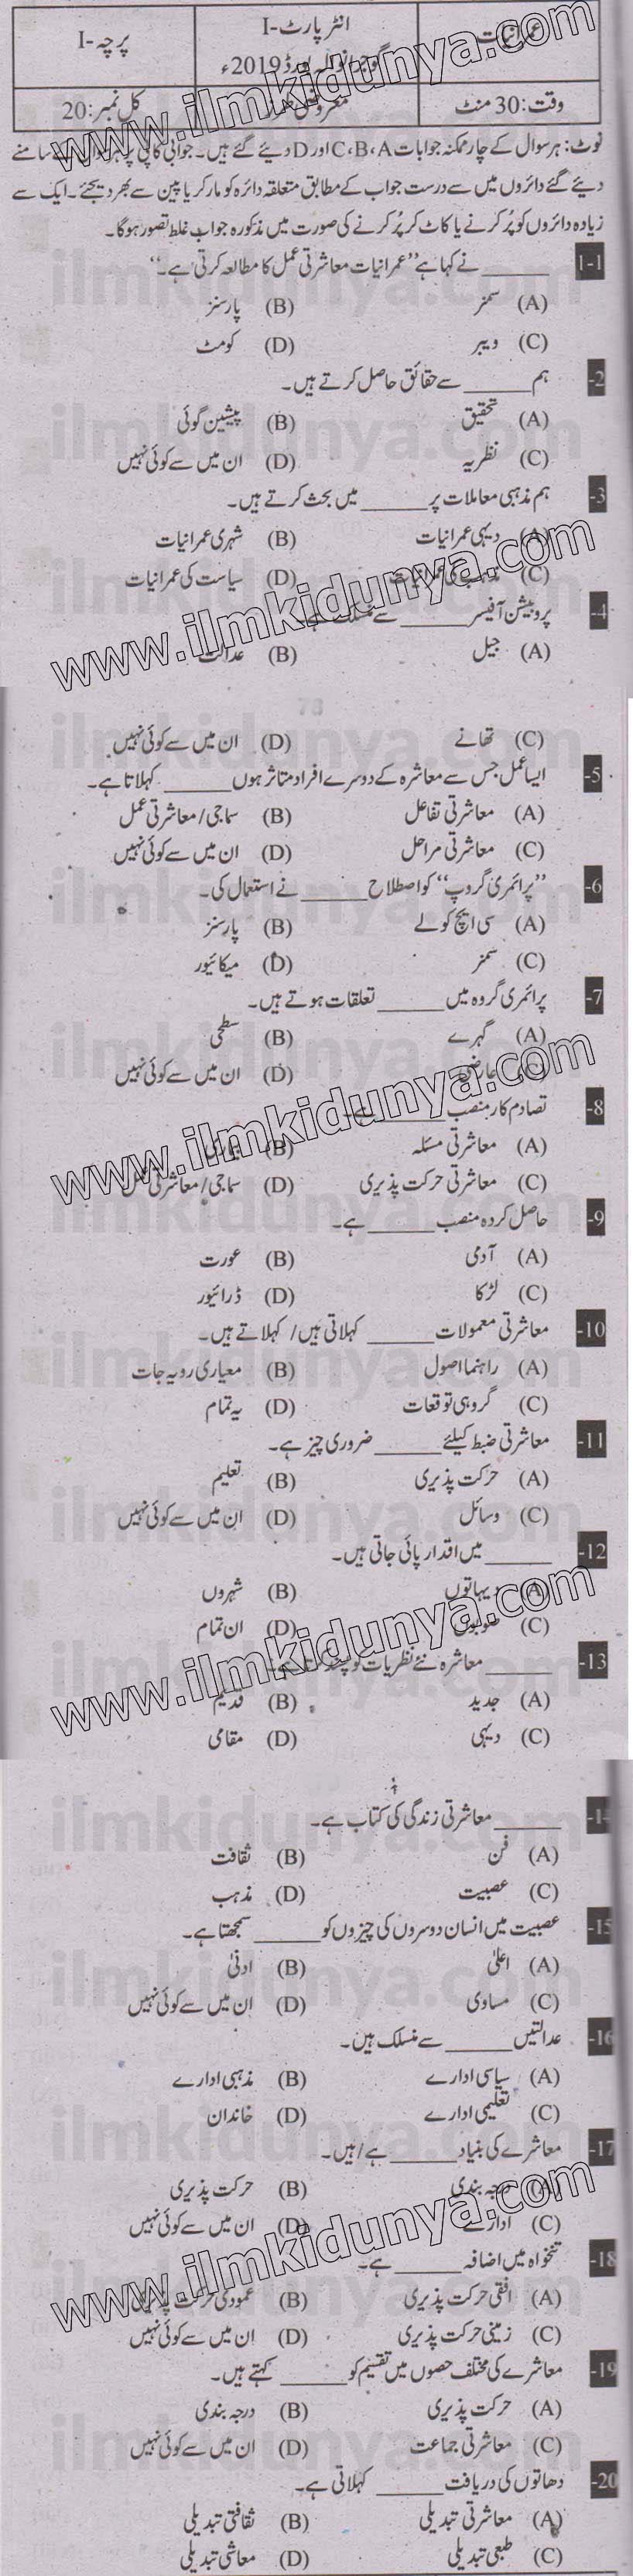 عمرانیات
انٹر پارٹ-I
پرچہ-I
گوجرانوالہ بورڈ 2019ء
وقت: 30 منٹ
معروضی طرز
کل نمبر: 20
نوٹ: ہر سوال کے چار ممکنہ جوابات C،B،A اور D دیئے گئے ہیں۔ جوابی کاپی پر ہر سوال کے سامنے
دیئے گئے دائروں میں سے درست جواب کے مطابق متعلقہ دائرہ کو مارکر یا پین سے بھر دیجئے۔ ایک سے
زیادہ دائروں کو پُر کرنے یا کاٹ کر پُر کرنے کی صورت میں مذکورہ جواب غلط تصور ہوگا۔
1-1 ______ نے کہا ہے ”عمرانیات معاشرتی عمل کا مطالعہ کرتی ہے۔“
(A) سمنر (B) پارسنز
(C) ویبر (D) کومٹ
2- ہم ______ سے حقائق حاصل کرتے ہیں۔
(A) تحقیق (B) پیشین گوئی
(C) نظریہ (D) ان میں سے کوئی نہیں
3- ہم مذہبی معاملات پر ______ میں بحث کرتے ہیں۔
(A) دیہی عمرانیات (B) شہری عمرانیات
(C) مذہب کی عمرانیات (D) سیاست کی عمرانیات
4- پروبیشن آفیسر ______ سے منسلک ہے۔
(A) جیل (B) عدالت
78
(C) تھانے (D) ان میں سے کوئی نہیں
5- ایسا عمل جس سے معاشرہ کے دوسرے افراد متاثر ہوں ______ کہلاتا ہے۔
(A) معاشرتی تفاعل (B) سماجی/معاشرتی عمل
(C) معاشرتی مراحل (D) ان میں سے کوئی نہیں
6- ”پرائمری گروپ“ کو اصطلاح ______ نے استعمال کی۔
(A) سی ایچ کولے (B) پارسنز
(C) سمنر (D) میکائیور
7- پرائمری گروہ میں ______ تعلقات ہوتے ہیں۔
(A) گہرے (B) سطحی
(C) عارضی (D) ان میں سے کوئی نہیں
8- تصادم کار منصب ______ ہے۔
(A) معاشرتی مسئلہ (B)
(C) معاشرتی حرکت پذیری (D) سماجی/معاشرتی عمل
9- حاصل کردہ منصب ______ ہے۔
(A) آدمی (B) عورت
(C) لڑکا (D) ڈرائیور
10- معاشرتی معمولات ______ کہلاتی ہیں/ کہلاتے ہیں۔
(A) راہنما اصول (B) معیاری رویہ جات
(C) گروہی توقعات (D) یہ تمام
11- معاشرتی ضبط کیلئے ______ ضروری چیز ہے۔
(A) حرکت پذیری (B) تعلیم
(C) وسائل (D) ان میں سے کوئی نہیں
12- ______ میں اقدار پائی جاتی ہیں۔
(A) دیہاتوں (B) شہروں
(C) صوبوں (D) ان تمام
13- ______ معاشرہ نئے نظریات کو پسند کرتا ہے۔
(A) جدید (B) قدیم
(C) دیہی (D) مقامی
14- ______ معاشرتی زندگی کی کتاب ہے۔
(A) فن (B) ثقافت
(C) عصبیت (D) مذہب
15- عصبیت میں انسان دوسروں کی چیزوں کو ______ سمجھتا ہے۔
(A) اعلیٰ (B) ادنیٰ
(C) مساوی (D) ان میں سے کوئی نہیں
16- عدالتیں ______ سے منسلک ہیں۔
(A) سیاسی ادارے (B) مذہبی ادارے
(C) تعلیمی ادارے (D) خاندان
17- معاشرے کی بنیاد ______ ہے/ہیں۔
(A) درجہ بندی (B) حرکت پذیری
(C) ادارے (D) ان میں سے کوئی نہیں
18- تنخواہ میں اضافہ ______ ہے۔
(A) افقی حرکت پذیری (B) عمودی حرکت پذیری
(C) زمینی حرکت پذیری (D) ان میں سے کوئی نہیں
19- معاشرے کی مختلف حصوں میں تقسیم کو ______ کہتے ہیں۔
(A) حرکت پذیری (B) درجہ بندی
(C) معاشرتی جماعت (D) ان میں سے کوئی نہیں
20- دھاتوں کی دریافت ______ کہلاتی ہے۔
(A) معاشرتی تبدیلی (B) ثقافتی تبدیلی
(C) طبعی تبدیلی (D) معاشی تبدیلی
www.ilmkidunya.com
www.ilmkidunya.com
www.ilmkidunya.com
www.ilmkidunya.com
www.ilmkidunya.com